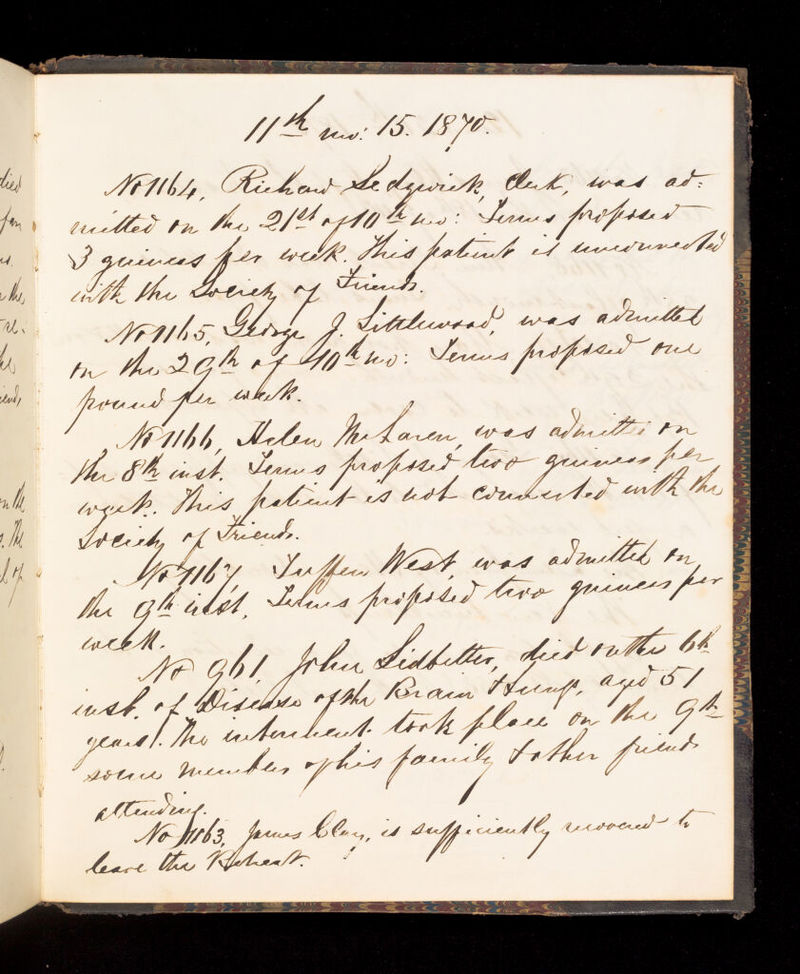 11th mo: 15. 1870.
No 1164, Richard Sedgwick, Clerk, was ad:
mitted on the 21st of 10th mo: Terms proposed
3 guineas per week. This patient is unconnected
with the Society of Friends.
No 1165, George J. Littlewood, was admitted
on the 29th of 10th mo: Terms proposed one
pound per week.
No 1166, Helen McLaren, was admitted on
the 8th inst. Terms proposed two guineas per
week. This patient is not connected with the
Society of Friends.
No 1167, Tuffen West, was admitted on
the 9th inst. Terms proposed two guineas per
week.
No 961, John Lidbetter, died on the 6th
inst. of Disease of the Brain & Lungs, aged 51
years. The interment took place on the 9th
some members of his family & other friends
attending.
No 1163, James Clay, is sufficiently recovered to
leave the Retreat.
died
the